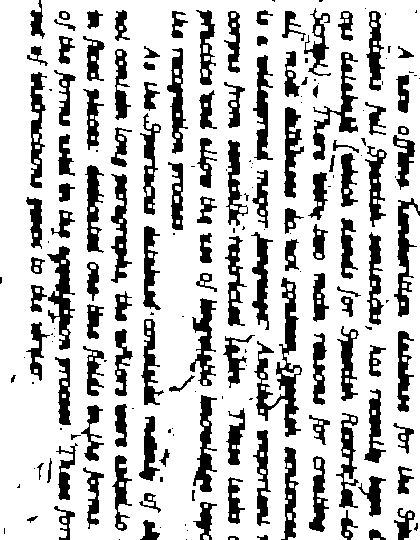 A new offline handwritten database for the Spa
contains full Spanish sentences, has recently been
cus database (which stands for Spanish Restricted-do
Script). There were two main reasons for creating
all, most databases do not contain Spanish sentences
is a widespread major language. Another important
corpus from semantic-restricted tasks. These tasks
practice and allow the use of linguistic knowledge beyo
the recognition process.
As the Spartacus database consisted mainly of sh
not contain long paragraphs, the writers were asked to
in fixed places: dedicated one-line fields in the forms
of the forms used in the acquisition process. These form
set of instructions given to the writer.